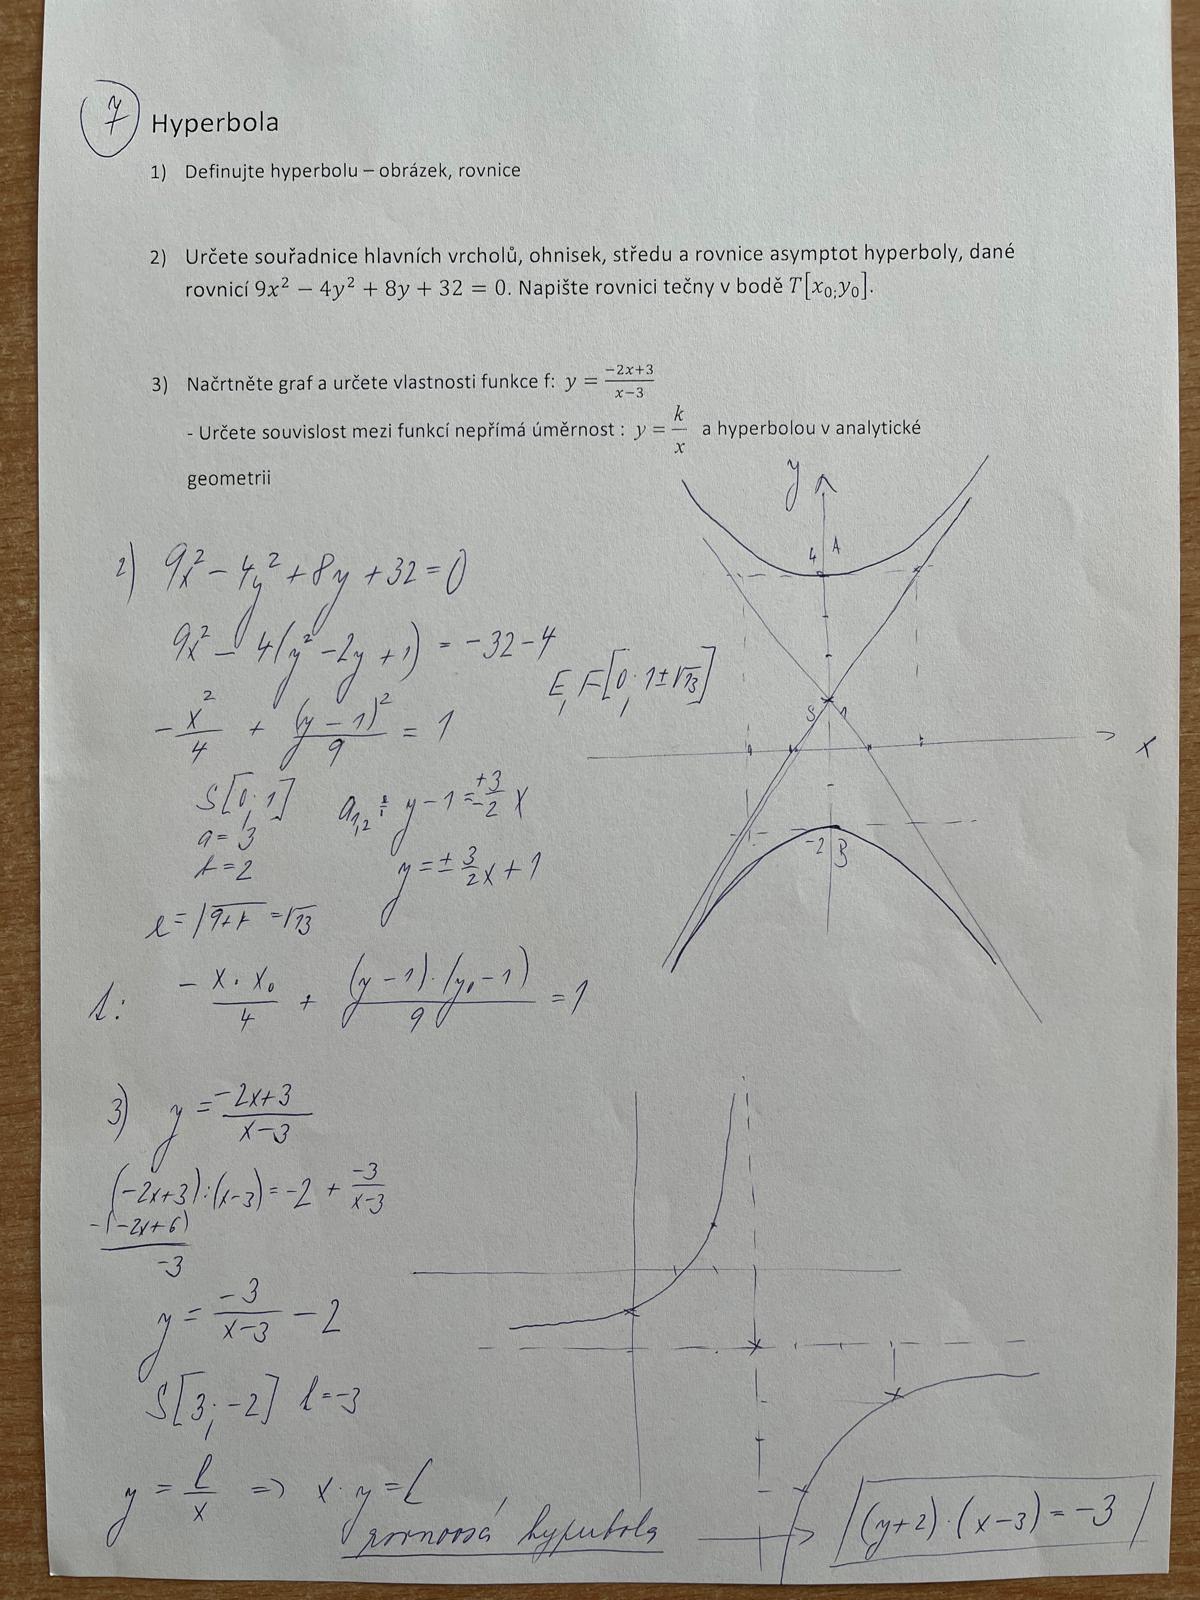 7
Hyperbola
1) Definujte hyperbolu – obrázek, rovnice
2) Určete souřadnice hlavních vrcholů, ohnisek, středu a rovnice asymptot hyperboly, dané
rovnicí 9x² − 4y² + 8y + 32 = 0. Napište rovnici tečny v bodě T[x₀;y₀].
3) Načrtněte graf a určete vlastnosti funkce f: y = (-2x+3)/(x-3)
- Určete souvislost mezi funkcí nepřímá úměrnost : y = k/x a hyperbolou v analytické
geometrii
2) 9x² - 4y² + 8y + 32 = 0
9x² - 4(y² - 2y + 1) = -32 - 4
- x²/4 + (y-1)²/9 = 1
S[0;1]
a = 3
b = 2
e = √9+4 = √13
a₁,₂: y - 1 = ±3/2 x
y = ± 3/2 x + 1
E, F[0; 1±√13]
t: - x·x₀/4 + (y-1)·(y₀-1)/9 = 1
y
4 A
S 1
x
-2 B
3) y = (-2x+3)/(x-3)
(-2x+3):(x-3) = -2 + -3/(x-3)
-(-2x+6)
-3
y = -3/(x-3) - 2
S[3;-2] k=-3
y = k/x => x·y = k
rovnoosá hyperbola → (y+2)·(x-3) = -3